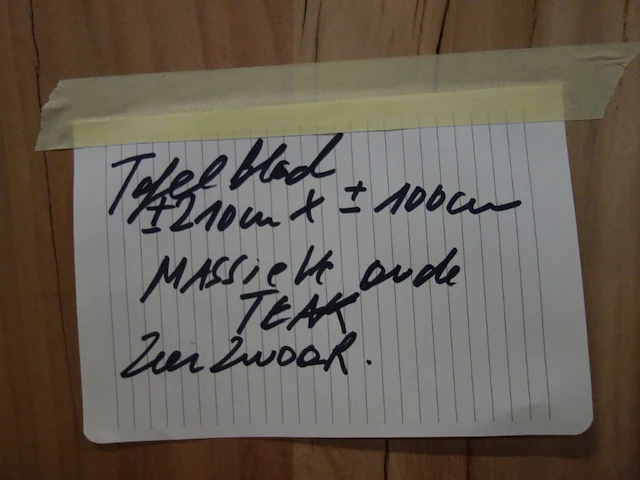 Tafelblad
±210cm X ± 100cm
MASSieve oude
TEAK
Zeer Zwaar.